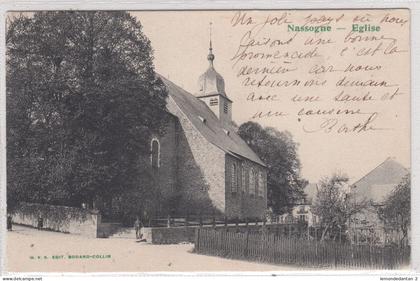 Nassogne — Eglise
Un joli pays où nous
faisons une bonne
promenade, c'est la
dernière car nous
retournons demain
avec une tante et
une cousine
Berthe
W. V. S. EDIT. BODARD-COLLIN